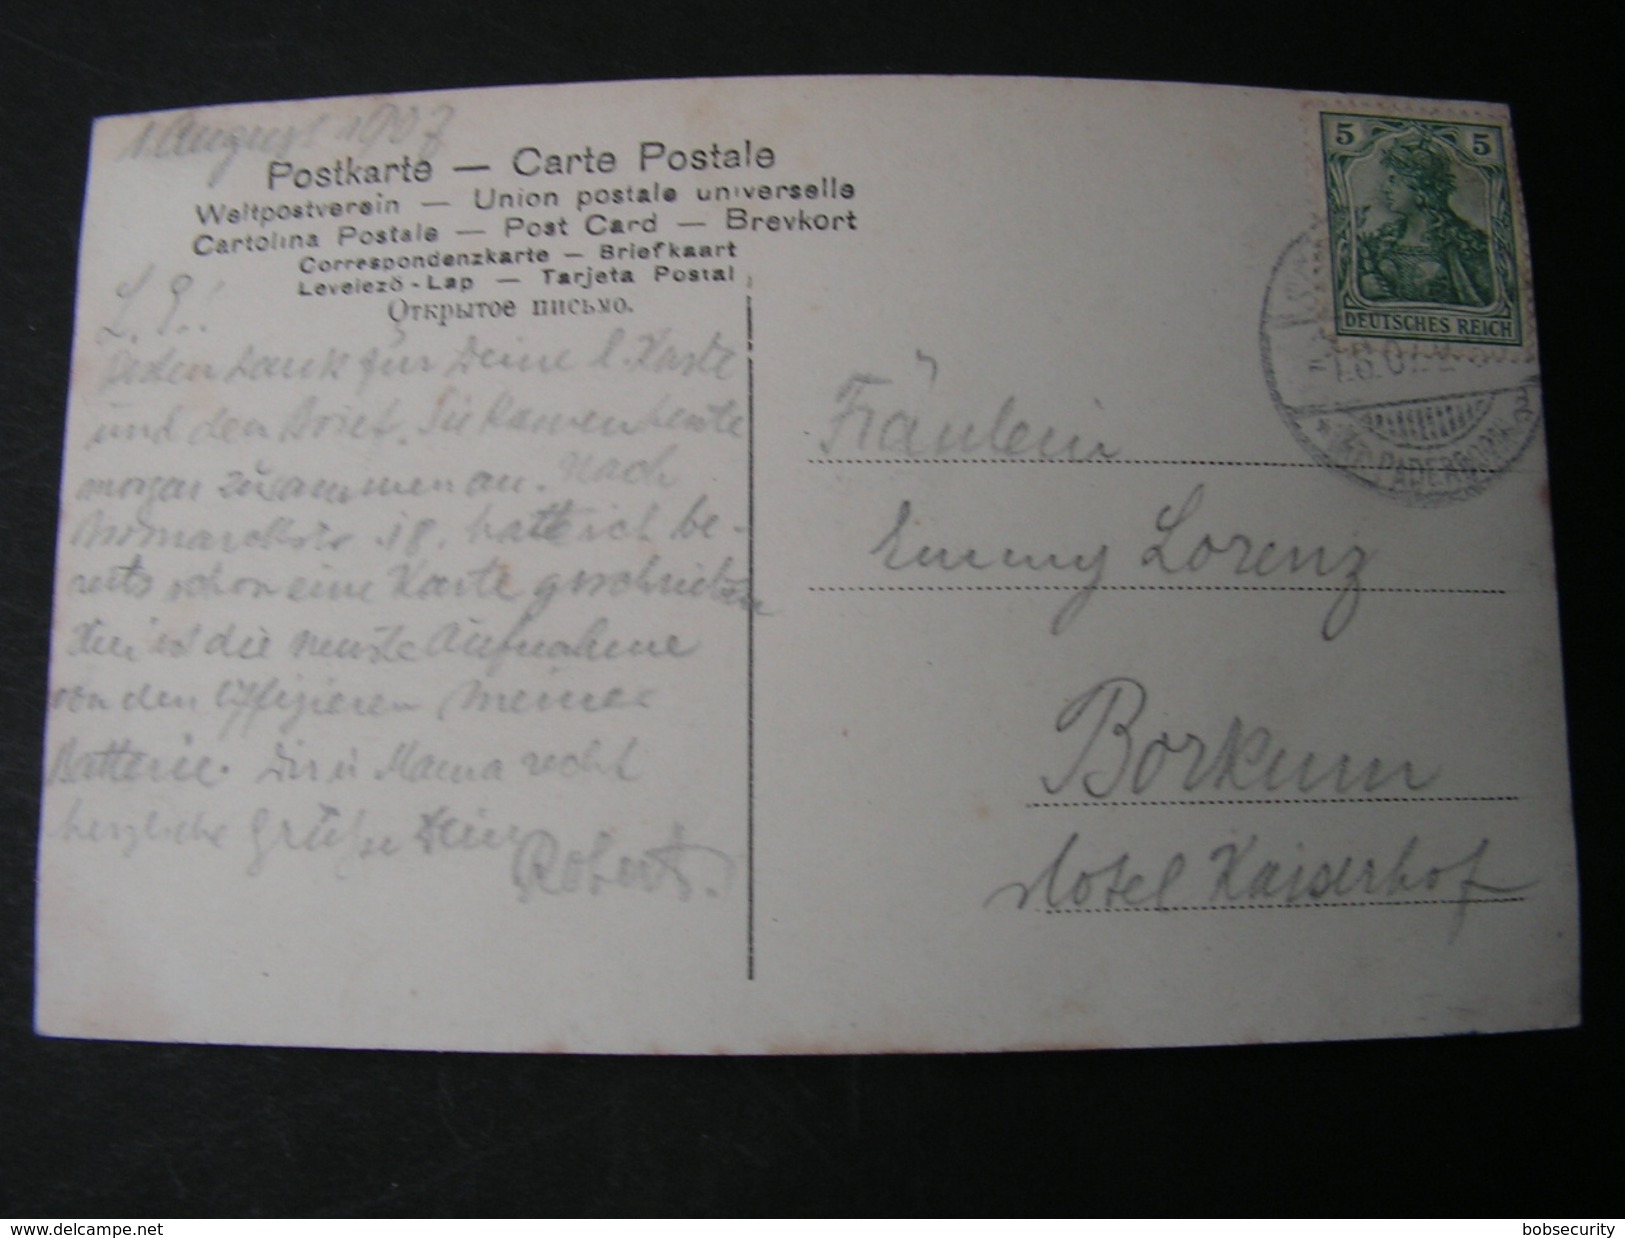 1. August 1907
Postkarte — Carte Postale
Weltpostverein — Union postale universelle
Cartolina Postale — Post Card — Brevkort
Correspondenzkarte — Briefkaart
Levelező-Lap — Tarjeta Postal
Открытое письмо.
L. E.!
Besten Dank für Deine l. Karte
und den Brief. Sie kamen heute
morgen zusammen an. Nach
Bismarckstr. 18. hatte ich be-
reits schon eine Karte geschrieben
Hier ist die neuste Aufnahme
von den Offizieren meiner
Batterie. Dir u Mama recht
herzliche Grüße Dein
Robert.
5 5
DEUTSCHES REICH
1.8.07.
PADERBORN
Fräulein
Emmy Lorenz
Borkum
Hotel Kaiserhof
www.delcampe.net
bobsecurity